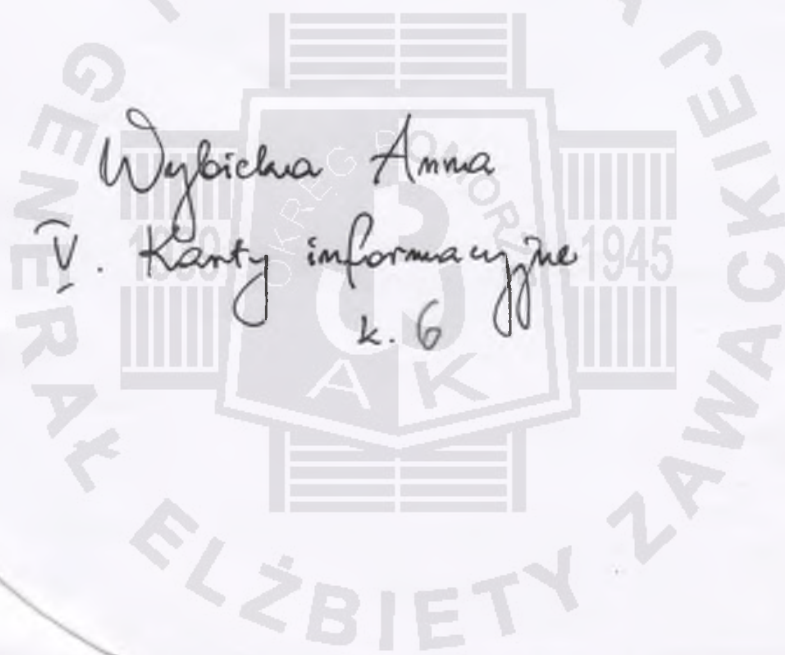 Wybicka Anna
V. Karty informacyjne
k. 6
GENERAŁ ELŻBIETY ZAWACKIEJ
OKRĘG POMORZE
1945
AK